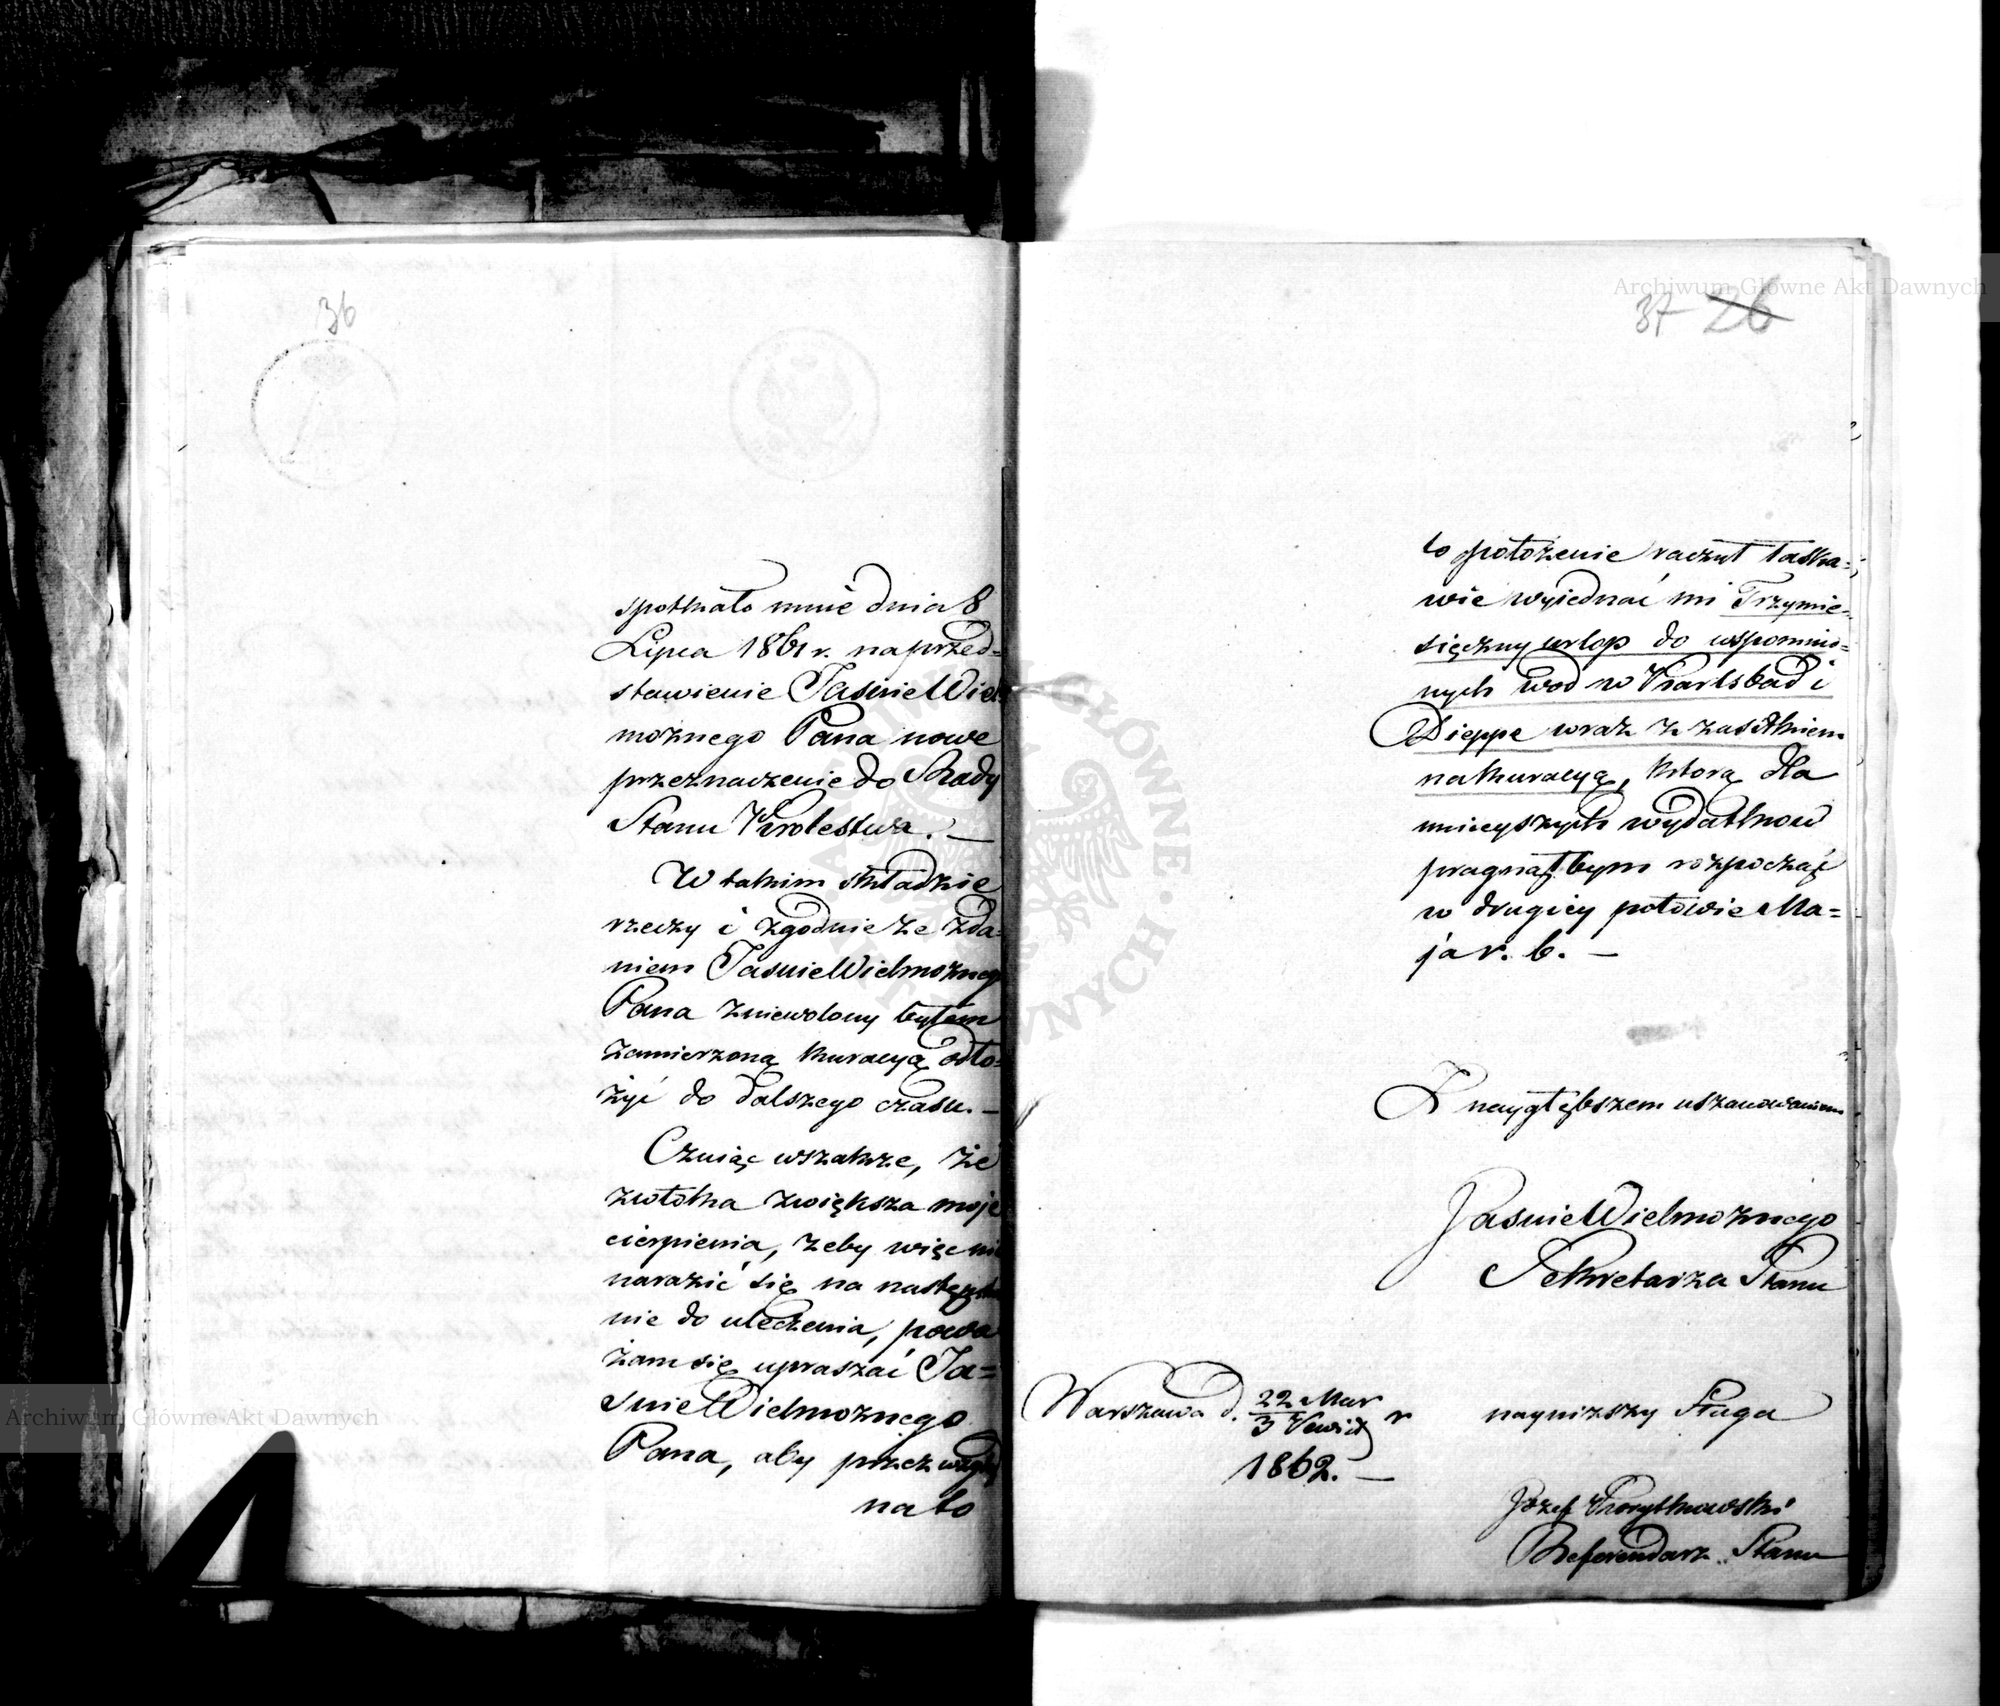 36
spotkało mnie dnia 8
Lipca 1861 r. na przed=
stawienie JaśnieWiel
możnego Pana nowe
przeznaczenie do Rady
Stanu Królestwa. —
W takim składzie
rzeczy i zgodnie ze zda=
niem JaśnieWielmożnego
Pana zniewolony byłem
zamierzoną kuracyą odło=
żyć do dalszego czasu. —
Czując wszakże, że
zwłoka zwiększa moje
cierpienia, żeby więc nie
narazić się na
nie do uleczenia, powa
żam się upraszać Ja=
śnieWielmożnego
Pana, aby przez wzgląd
na to
37 26
to położenie raczył łaska=
wie wyjednać mi Trzymie=
sięczny urlop do wspomnio=
nych wod w Karlsbad i
Dieppe wraz z zasiłkiem
na kuracyą, którą dla
mnieyszych wydatków
pragnąłbym rozpocząć
w drugiey połowie Ma=
ja r. b. —
Z naygłębszem uszanowaniem
JaśnieWielmożnego
Sekretarza Stanu
Warszawa d. 22 Mar
3 Kwie r
1862. —
nayniższy Sługa
Józef Korytkowski
Referendarz Stanu
Archiwum Główne Akt Dawnych
Archiwum Główne Akt Dawnych